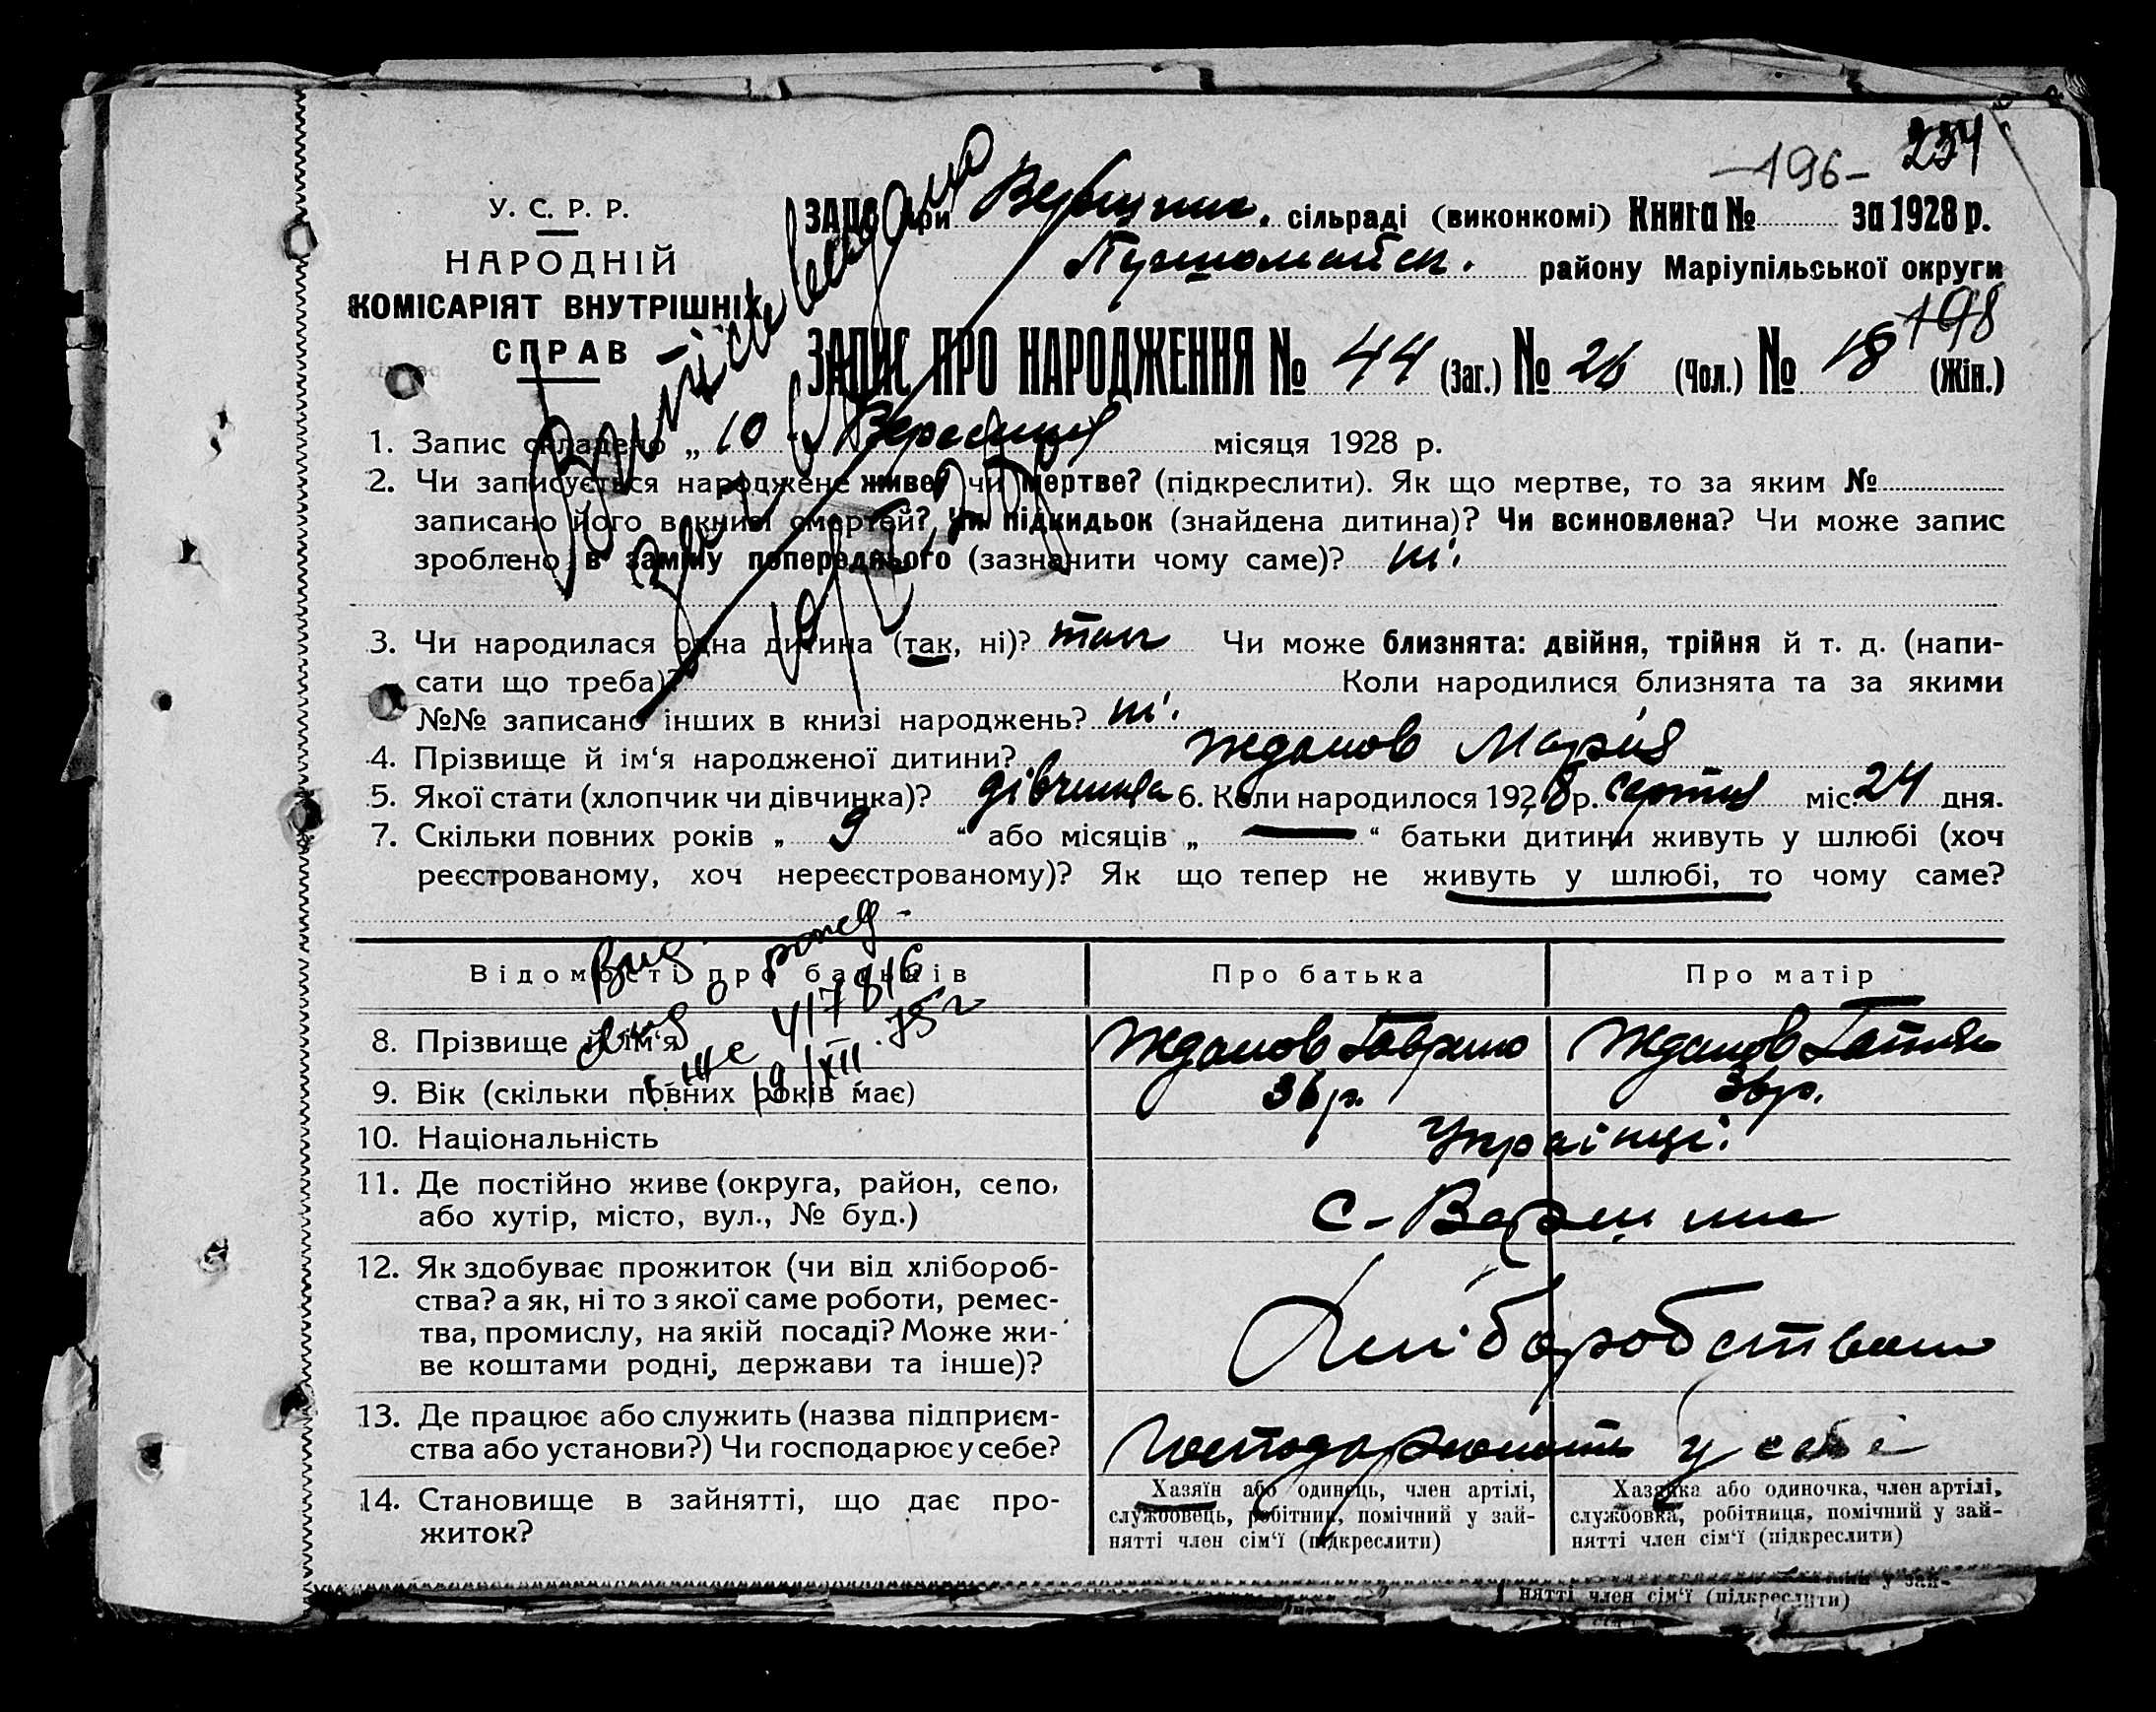 -196- 254
У. С. Р. Р.
ЗАПС при Вершинск. сільраді (виконкомі) Книга № за 1928 р.
НАРОДНІЙ
КОМІСАРІЯТ ВНУТРІШНІХ
СПРАВ
Першомайск. району Маріупільської округи
198
ЗАПИС ПРО НАРОДЖЕННЯ № 44 (Заг.) № 26 (Чол.) № 18 (Жін.)
1. Запис складено „ 10 “ Вересня місяця 1928 р.
2. Чи записується народжене живе? чи мертве? (підкреслити). Як що мертве, то за яким №
записано його в книзі смертей? Чи підкидьок (знайдена дитина)? Чи всиновлена? Чи може запис
зроблено в заміну попереднього (зазначити чому саме)? ні.
3. Чи народилася одна дитина (так, ні)? так Чи може близнята: двійня, трійня й т. д. (напи-
сати що треба)? Коли народилися близнята та за якими
№№ записано інших в книзі народжень? ні.
4. Прізвище й ім‘я народженої дитини? Жданов Марія
5. Якої стати (хлопчик чи дівчинка)? дівчинка 6. Коли народилося 1928 р. серпня міс. 24 дня.
7. Скільки повних років „ 9 “ або місяців „ — “ батьки дитини живуть у шлюбі (хоч
реєстрованому, хоч нереєстрованому)? Як що тепер не живуть у шлюбі, то чому саме?
Відомості про батьків Про батька Про матір
417816
19/XII 75 г
8. Прізвище й ім‘я Жданов Гаврило Жданов
9. Вік (скільки повних років має) 36 р. 36 р.
10. Національність Українці.
11. Де постійно живе (округа, район, село,
або хутір, місто, вул., № буд.) с-Вершина
12. Як здобуває прожиток (чи від хлібороб-
ства? а як, ні то з якої саме роботи, ремес-
тва, промислу, на якій посаді? Може жи-
ве коштами родні, держави та інше)? Хліборобством
13. Де працює або служить (назва підприєм-
ства або установи?) Чи господарює у себе? Господарюють у себе
14. Становище в зайнятті, що дає про-
житок?
Хазяїн або одинець, член артілі,
службовець, робітник, помічний у зай-
нятті член сім‘ї (підкреслити)
Хазяйка або одиночка, член артілі,
службовка, робітниця, помічний у зай-
нятті член сім‘ї (підкреслити)
нятті член сім‘ї (підкреслити)